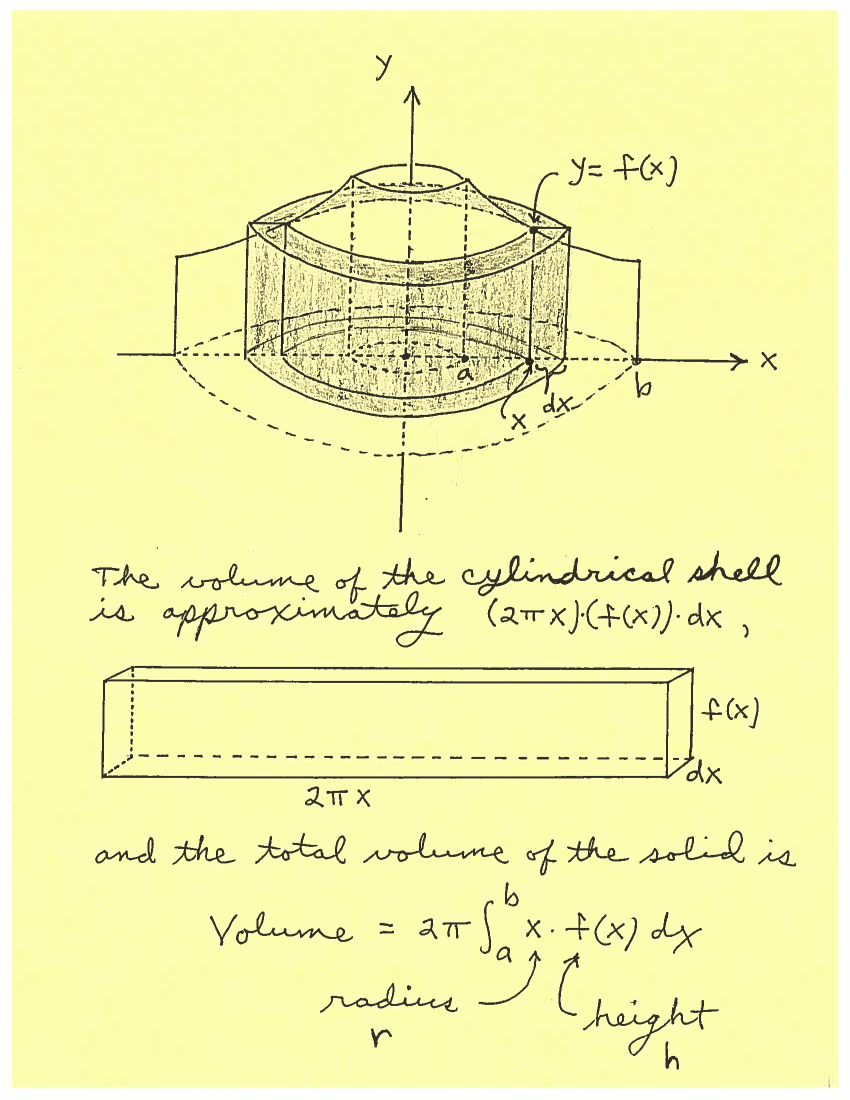 y
y = f(x)
x
a
b
x
dx
The volume of the cylindrical shell
is approximately (2π x)·(f(x))·dx ,
f(x)
dx
2π x
and the total volume of the solid is
Volume = 2π ∫_a^b x · f(x) dx
radius
height
r
h